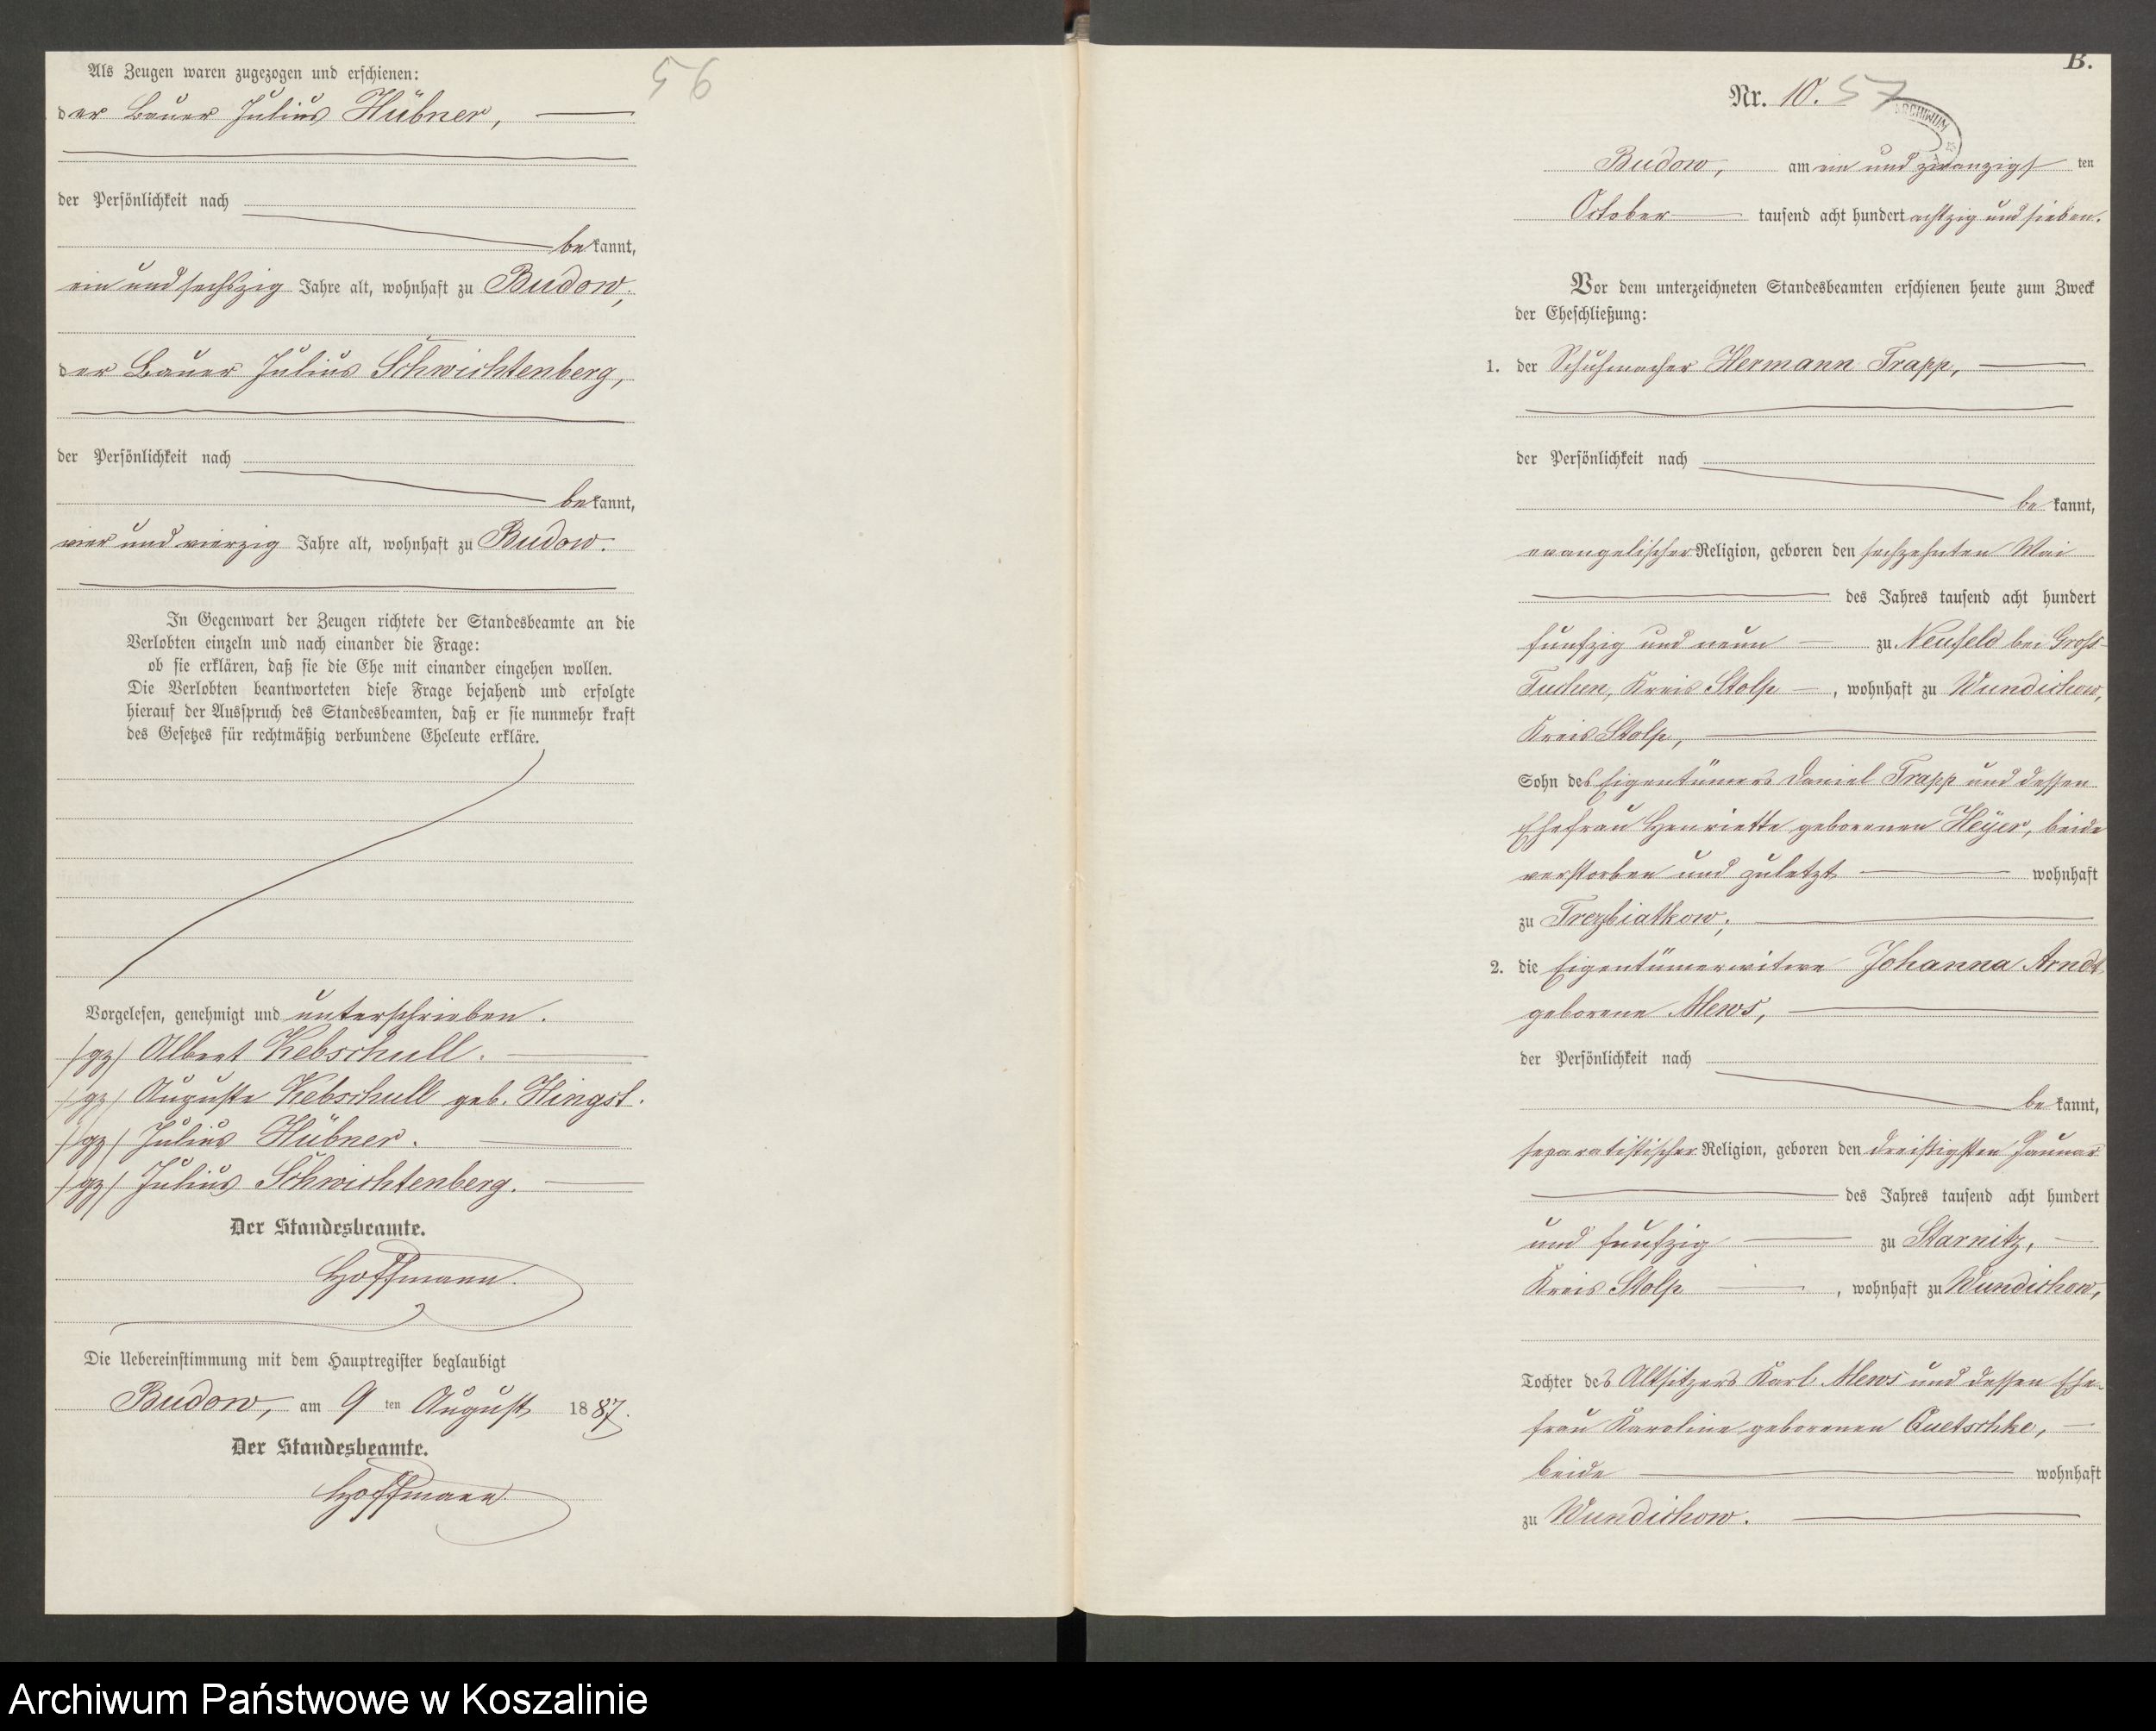 56
Als Zeugen waren zugezogen und erschienen:
der Bauer Julius Hübner,
der Persönlichkeit nach
bekannt,
ein und sechszig Jahre alt, wohnhaft zu Budow;
der Bauer Julius Schwichtenberg,
der Persönlichkeit nach
bekannt,
vier und vierzig Jahre alt, wohnhaft zu Budow.
In Gegenwart der Zeugen richtete der Standesbeamte an die
Verlobten einzeln und nach einander die Frage:
ob sie erklären, daß sie die Ehe mit einander eingehen wollen.
Die Verlobten beantworteten diese Frage bejahend und erfolgte
hierauf der Ausspruch des Standesbeamten, daß er sie nunmehr kraft
des Gesetzes für rechtmäßig verbundene Eheleute erkläre.
Vorgelesen, genehmigt und unterschrieben.
/gz/ Albert Kebschull.
/gz/ Auguste Kebschull geb. Hingst.
/gz/ Julius Hübner.
/gz/ Julius Schwichtenberg.
Der Standesbeamte.
Hoffmann.
Die Uebereinstimmung mit dem Hauptregister beglaubigt
Budow, am 9 ten August 1887.
Der Standesbeamte.
Hoffmann
B.
Nr. 10. 57
ARCHIWUM
Budow, am ein und zwanzigst ten
October tausend acht hundert achtzig und sieben.
Vor dem unterzeichneten Standesbeamten erschienen heute zum Zweck
der Eheschließung:
1. der Schuhmacher Hermann Trapp,
der Persönlichkeit nach
be kannt,
evangelischer Religion, geboren den sechzehnten Mai
des Jahres tausend acht hundert
funfzig und neun zu Neufeld bei Gross-
Tuchen, Kreis Stolp, wohnhaft zu Wundichow,
Kreis Stolp,
Sohn des Eigentümers Daniel Trapp und dessen
Ehefrau Henriette geborenen Heyer, beide
verstorben und zuletzt wohnhaft
zu Trezbiatkow;
2. die Eigentümerwitwe Johanna Arndt
geborene Mews,
der Persönlichkeit nach
be kannt,
separatistischer Religion, geboren den dreißigsten Januar
des Jahres tausend acht hundert
und funfzig zu Starnitz,
Kreis Stolp, wohnhaft zu Wundichow,
Tochter des Altsitzers Karl Mews und dessen Ehe-
frau Karoline geborenen Quetschke,
beide wohnhaft
zu Wundichow.
Archiwum Państwowe w Koszalinie